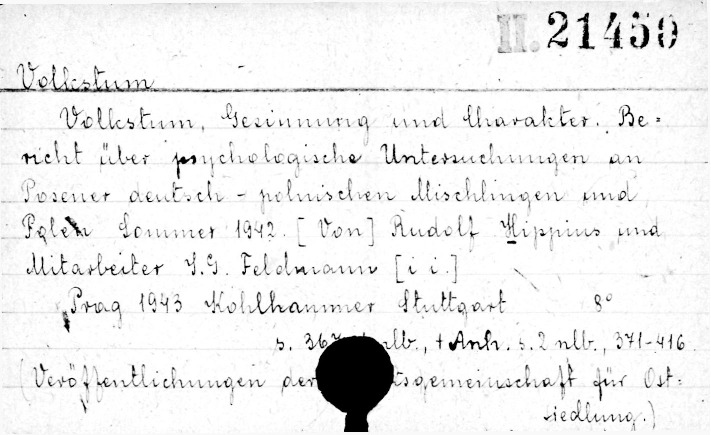 II. 21450
Volkstum
Volkstum, Gesinnung und Charakter. Be=
richt über psychologische Untersuchungen an
Posener deutsch - polnischen Mischlingen und
Polen Sommer 1942. [Von] Rudolf Hippius und
Mitarbeiter I.G. Feldmann [i i.]
Prag 1943 Kohlhammer Stuttgart 8°
s. 367 nlb., + Anh. s. 2 nlb., 371-416
(Veröffentlichungen der tsgemeinschaft für Ost=
siedlung.)